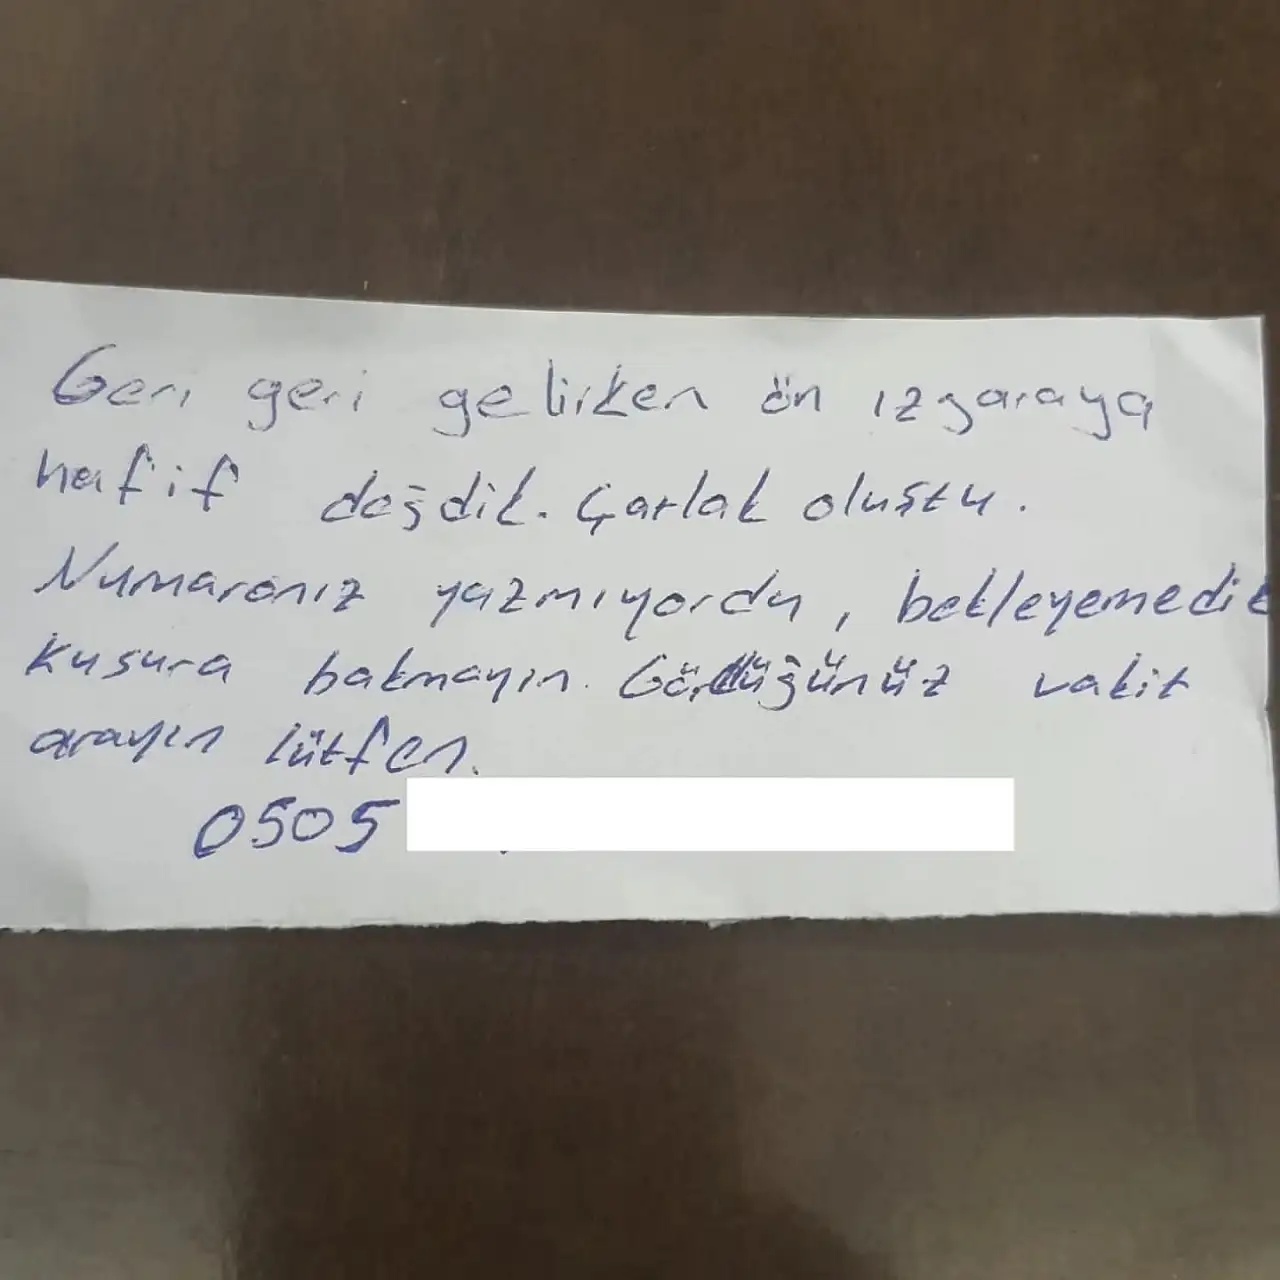 Geri geri gelirken ön ızgaraya
hafif değdik. Çatlak oluştu.
Numaranız yazmıyordu, bekleyemedik
kusura bakmayın. Gördüğünüz vakit
arayın lütfen.
0505